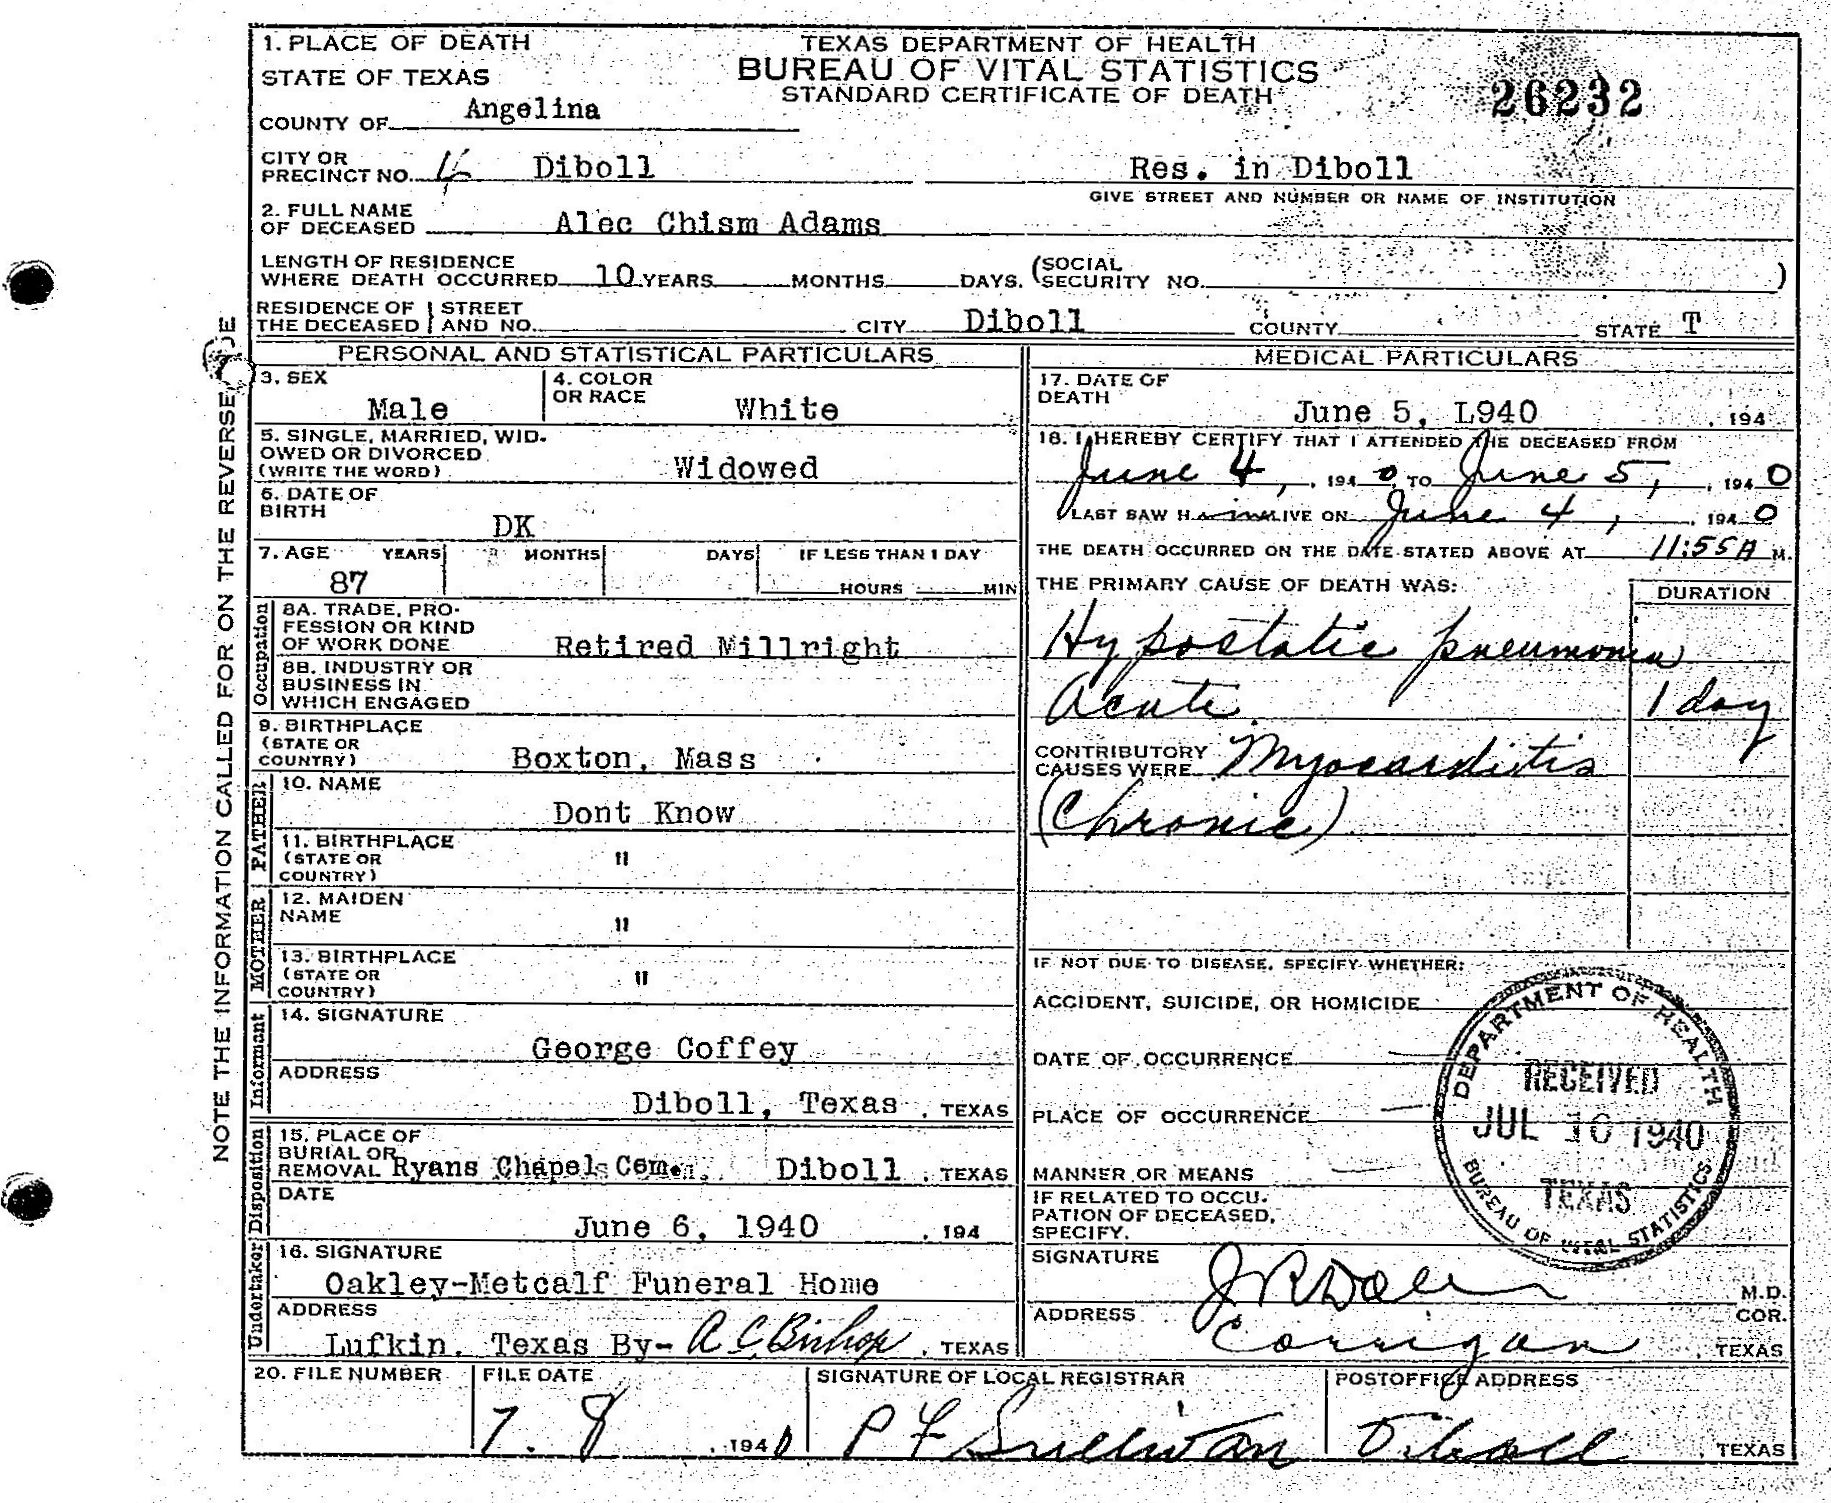 1. PLACE OF DEATH
STATE OF TEXAS
COUNTY OF Angelina
TEXAS DEPARTMENT OF HEALTH
BUREAU OF VITAL STATISTICS
STANDARD CERTIFICATE OF DEATH
26232
CITY OR
PRECINCT NO. 4 Diboll
Res. in Diboll
GIVE STREET AND NUMBER OR NAME OF INSTITUTION
2. FULL NAME
OF DECEASED Alec Chism Adams
LENGTH OF RESIDENCE
WHERE DEATH OCCURRED 10 YEARS MONTHS DAYS. (SOCIAL
SECURITY NO. )
RESIDENCE OF STREET
THE DECEASED AND NO. CITY Diboll COUNTY STATE T
PERSONAL AND STATISTICAL PARTICULARS
3. SEX
Male
4. COLOR
OR RACE White
5. SINGLE, MARRIED, WID-
OWED OR DIVORCED
(WRITE THE WORD) Widowed
6. DATE OF
BIRTH DK
7. AGE YEARS MONTHS DAYS IF LESS THAN 1 DAY
87 HOURS MIN
Occupation
8A. TRADE, PRO-
FESSION OR KIND
OF WORK DONE Retired Millright
8B. INDUSTRY OR
BUSINESS IN
WHICH ENGAGED
9. BIRTHPLACE
(STATE OR
COUNTRY) Boxton, Mass
FATHER
10. NAME
Dont Know
11. BIRTHPLACE
(STATE OR "
COUNTRY)
MOTHER
12. MAIDEN
NAME "
13. BIRTHPLACE
(STATE OR "
COUNTRY)
Informant
14. SIGNATURE
George Coffey
ADDRESS
Diboll, Texas , TEXAS
Disposition
15. PLACE OF
BURIAL OR
REMOVAL Ryans Chapel Cem. Diboll , TEXAS
DATE
June 6, 1940 , 194
Undertaker
16. SIGNATURE
Oakley-Metcalf Funeral Home
ADDRESS
Lufkin, Texas By- A C Bishop , TEXAS
MEDICAL PARTICULARS
17. DATE OF
DEATH
June 5, L940 , 194
18. I HEREBY CERTIFY THAT I ATTENDED THE DECEASED FROM
June 4, , 1940 TO June 5, , 1940
LAST SAW H im ALIVE ON June 4, , 1940
THE DEATH OCCURRED ON THE DATE STATED ABOVE AT 11:55A M.
THE PRIMARY CAUSE OF DEATH WAS: DURATION
Hypostatic pneumonia
Acute. 1 day
CONTRIBUTORY
CAUSES WERE Myocardistis
(Chronic)
IF NOT DUE TO DISEASE, SPECIFY WHETHER:
ACCIDENT, SUICIDE, OR HOMICIDE
DATE OF OCCURRENCE
PLACE OF OCCURRENCE
MANNER OR MEANS
IF RELATED TO OCCU-
PATION OF DECEASED,
SPECIFY.
DEPARTMENT OF HEALTH
RECEIVED
JUL 16 1940
TEXAS
BUREAU OF VITAL STATISTICS
SIGNATURE
M.D.
COR.
ADDRESS
Corrigan , TEXAS
20. FILE NUMBER
FILE DATE
7. 8 , 1940
SIGNATURE OF LOCAL REGISTRAR
P F Sullivan
POSTOFFICE ADDRESS
Diboll , TEXAS
NOTE THE INFORMATION CALLED FOR ON THE REVERSE